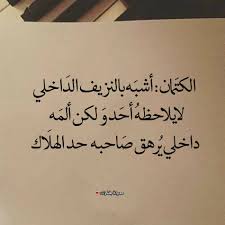 الكتمان: أشبَه بالنزيف الدَاخلي
لايلاحظهُ أحَدوَ لكن ألمَه
داخلي يُرهق صَاحبه حد الهلَاك